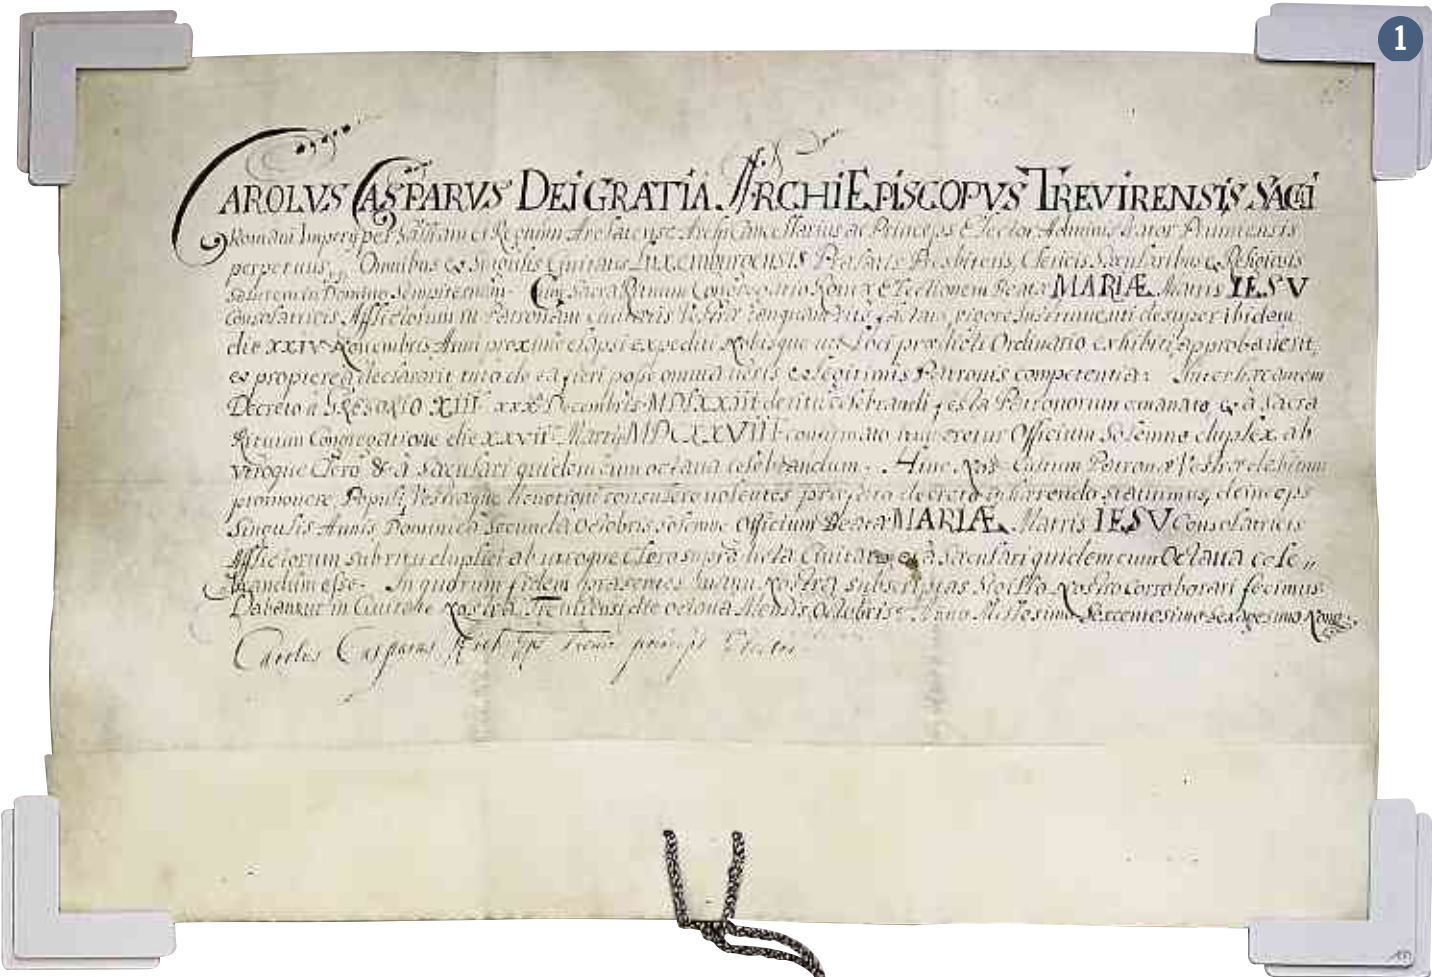 1
CAROLVS CASPARVS DEI GRATIA ARCHIEPISCOPVS TREVIRENSIS SACRI
Romani Imperÿ per Galliam et Regnum Arelatense Archicancellarius ac Princeps Elector Administrator Prumiensis
perpetuus, Omnibus et Singulis Civitatis Luxemburgensis Praelatis Presbiteris, Clericis Saecularibus et Religiosis
Salutem in Domino Sempiternam. Cum Sacra Rituum Congregatio Electionem Beatae MARIÆ Matris IESV
Consolatricis Afflictorum in Patronam Civitatis Vestrae tanquam rite factam, vigore Instrumenti desuper ibidem
die XXIV Novembris Anni proxime elapsi expediti Nobisque uti Loci Ordinario exhibiti, approbaverit,
et propterea declararit tuto de ea fieri posse omnia veris et legitimis Patronis competentia: Inter haec autem
Decreto a GREGORIO XIII. XXX Decembris MDLXXIII de ritu celebrandi festa Patronorum emanato et à Sacra
Rituum Congregatione die XXVII Martÿ MDCXXVIII confirmato Officium Solemne duplex ab
vtroque Clero & à Saeculari quidem cum octava celebrandum. Hinc Nos Cultum Patronae Vestrae debitum
promovere Populÿ Vestraeque devotioni consulere volentes praefato decreto inhaerendo statuimus, deinceps
Singulis Annis Dominica Secunda Octobris solemne Officium Beatae MARIÆ Matris IESV Consolatricis
Afflictorum sub ritu duplici ab utroque Clero supradictae Civitatis et à Saeculari quidem cum Octava cele„
brandum esse. In quorum fidem praesentes manu Nostra subscriptas Sigillo Nostro corroborari fecimus.
Dabantur in Civitate Nostra die octava Mensis Octobris Anno Millesimo Sexcentesimo Sexagesimo Nono
Carolus Casparus Arch princeps Elector